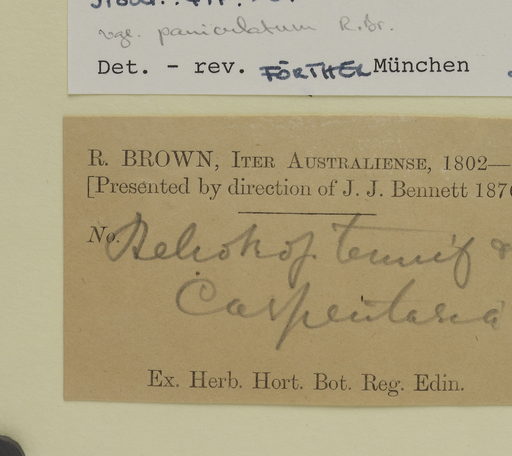 vgl. paniculatum R.Br.
Det. - rev. FÖRTHER München
R. BROWN, ITER AUSTRALIENSE, 1802—
[Presented by direction of J. J. Bennett 187
No. Heliotrop. tenuif
Carpentaria
Ex. Herb. Hort. Bot. Reg. Edin.